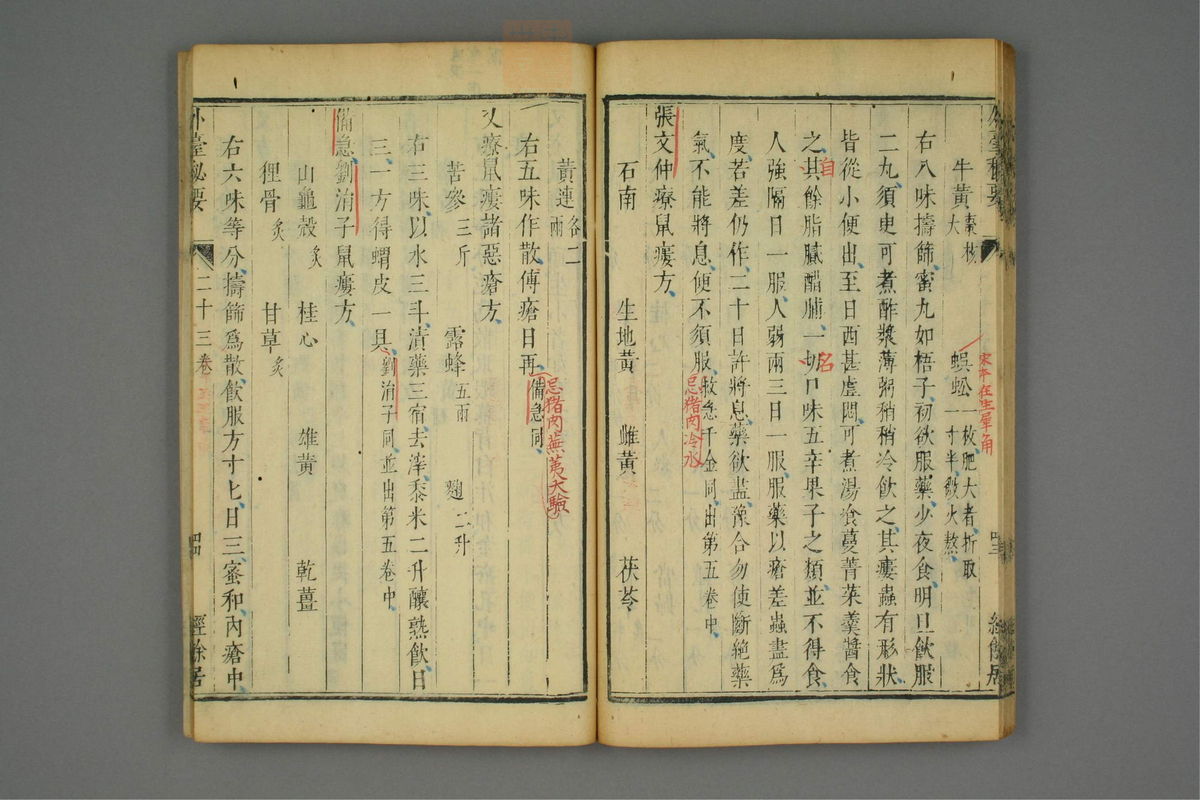 外臺秘要
牛黃大棗核
蜈蚣一枚肥大者折取一寸半微火熬
宋本在生犀角
右八味擣篩蜜丸如梧子初欲服藥少夜食明旦飲服
二丸須臾可煮酢漿薄粥稍稍冷飲之其瘻蟲有形狀
皆從小便出至日西甚虛悶可煮湯飡蔓菁菜羹醬食
之其餘脂膩醋脯一切口味五辛果子之類並不得食
自
名
人強隔日一服人弱兩三日一服服藥以瘡差蟲盡為
度若差仍作二十日許將息藥欲盡豫合勿使斷絕藥
氣不能將息便不須服救急千金同出第五卷中
忌猪肉冷水
張文仲療鼠瘻方
石南 生地黃 雌黃 茯苓
黃連各二兩
右五味作散傅瘡日再備急同
忌猪肉蕪荑大驗
又療鼠瘻諸惡瘡方
苦參三斤 露蜂五兩 麴二升
右三味以水三斗漬藥三宿去滓黍米二升釀熟飲日
三一方得蝟皮一具劉涓子同並出第五卷中
備急劉涓子鼠瘻方
山龜殼炙 桂心 雄黃 乾薑
狸骨炙 甘草炙
右六味等分擣篩為散飲服方寸匕日三蜜和內瘡中
外臺秘要 二十三卷 四四 經餘居